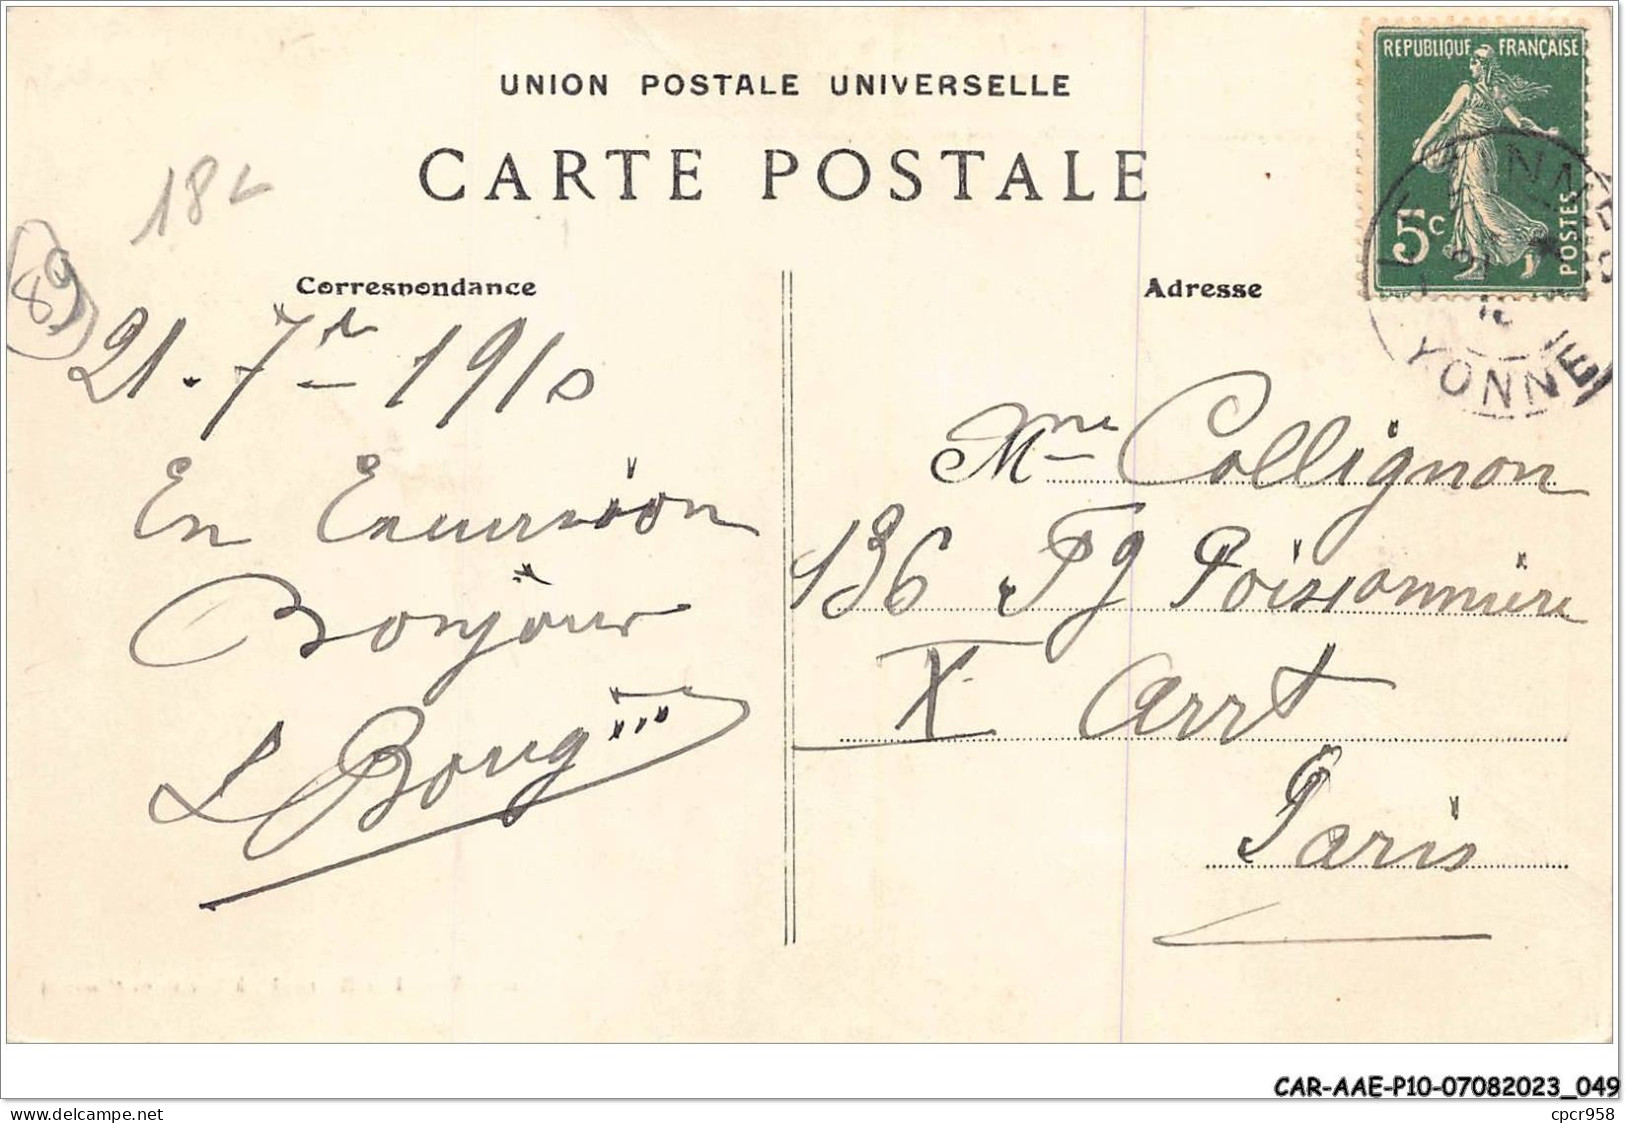 UNION POSTALE UNIVERSELLE
CARTE POSTALE
18L
89
Correspondance
Adresse
RÉPUBLIQUE FRANÇAISE
5c
POSTES
YONNE
21 . 7re 1910
En Excursion
Bonjour
L Boug
Mme Collignon
136 Fg Poissonnière
X Arrt
Paris
CAR-AAE-P10-07082023_049
www.delcampe.net
cpcr958